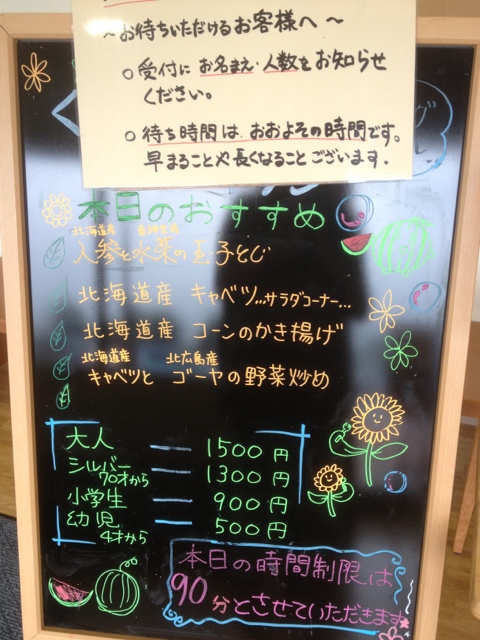 ~お待ちいただけるお客様へ~
○受付に お名まえ・人数をお知らせ
ください。
○待ち時間は、おおよその時間です。
早まることや長くなることございます.
本日のおすすめ
北海道産
人参と水菜の玉子とじ
北海道産 キャベツ...サラダコーナー...
北海道産 コーンのかき揚げ
北海道産 北広島産
キャベツと ゴーヤの野菜炒め
大人 ー 1500円
シルバー 70才から ー 1300円
小学生 ー 900円
幼児 4才から ー 500円
本日の時間制限は
90分とさせていただきます